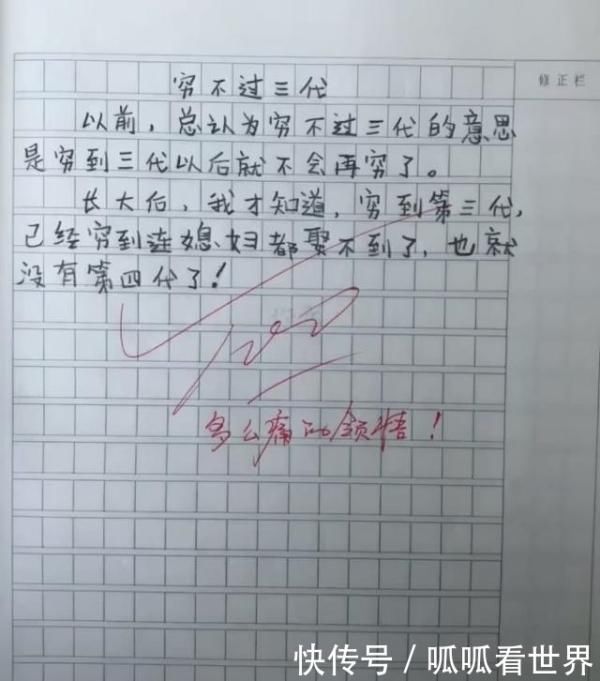 修正栏
穷不过三代
以前，总认为穷不过三代的意思
是穷到三代以后就不会再穷了。
长大后，我才知道，穷到第三代，
已经穷到连媳妇都娶不到了，也就
没有第四代了！
100
多么痛的领悟！
快传号／呱呱看世界